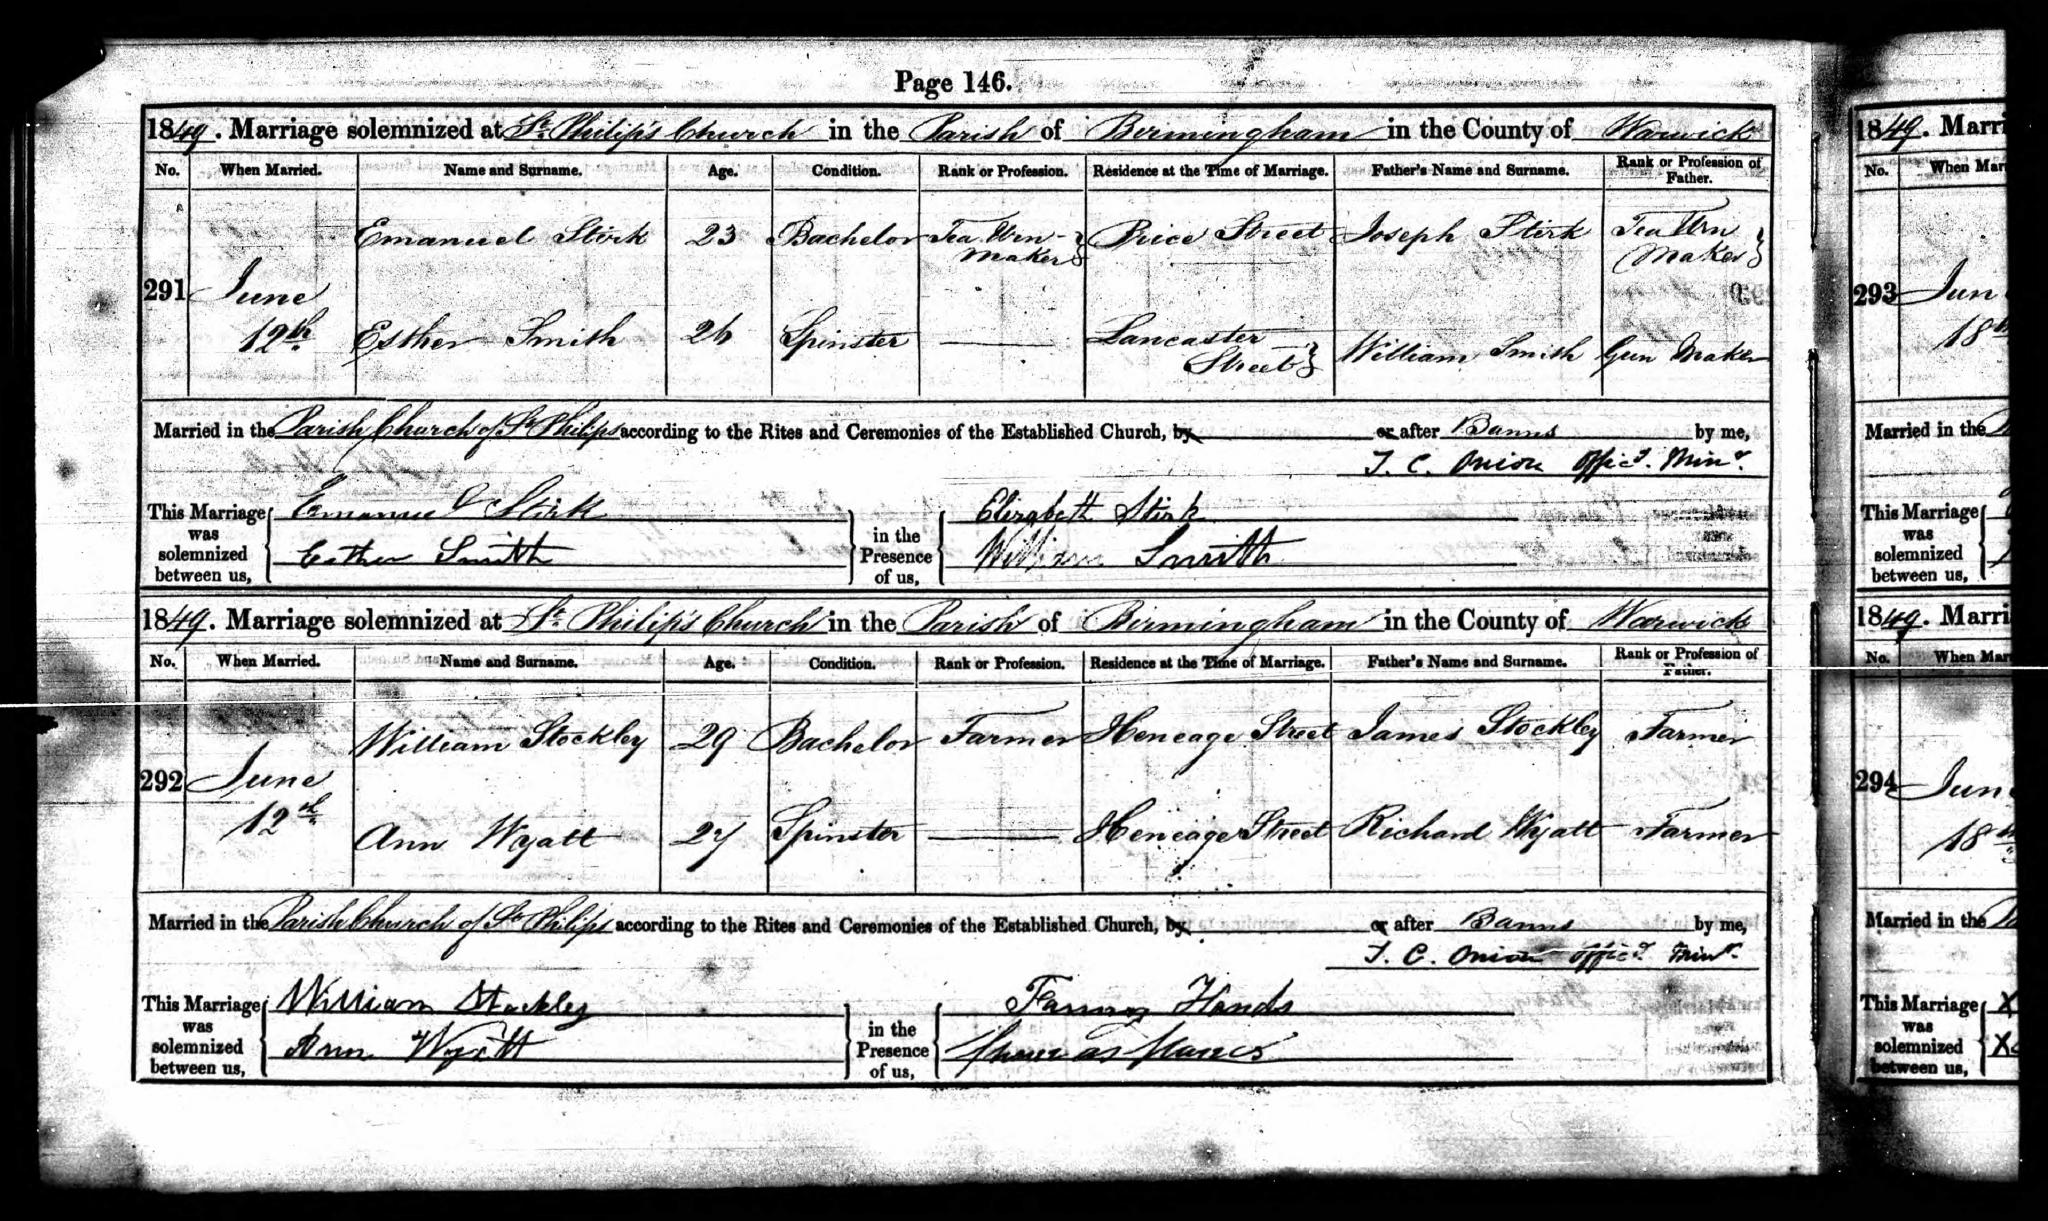 Page 146.
1849. Marriage solemnized at St. Philip's Church in the Parish of Birmingham in the County of Warwick
No. When Married. Name and Surname. Age. Condition. Rank or Profession. Residence at the Time of Marriage. Father's Name and Surname. Rank or Profession of Father.
291 June 12th. Emanuel Stirk 23 Bachelor Tea Urn Maker Price Street Joseph Stirk Tea Urn Maker
Esther Smith 26 Spinster Lancaster Street William Smith Gun Maker
Married in the Parish Church of St Philips according to the Rites and Ceremonies of the Established Church, by or after Banns by me,
T. C. Onion Offic.g Minr.
This Marriage was solemnized between us, Emanuel Stirk in the Presence of us, Elizabeth Stirk
Esther Smith William Smith
1849. Marriage solemnized at St. Philip's Church in the Parish of Birmingham in the County of Warwick
No. When Married. Name and Surname. Age. Condition. Rank or Profession. Residence at the Time of Marriage. Father's Name and Surname. Rank or Profession of Father.
292 June 12th. William Stockley 29 Bachelor Farmer Heneage Street James Stockley Farmer
Ann Wyatt 27 Spinster Heneage Street Richard Wyatt Farmer
Married in the Parish Church of St Philips according to the Rites and Ceremonies of the Established Church, by or after Banns by me,
T. C. Onion Offic.g Minr.
This Marriage was solemnized between us, William Stockley in the Presence of us, Fanny Hands
Ann Wyatt Thomas Hands
1849. Marri
No. When Mar
293 Jun
18th
Married in the
This Marriage was solemnized between us,
1849. Marri
No. When Mar
294 Jun
18th
Married in the
This Marriage was solemnized between us, X
X